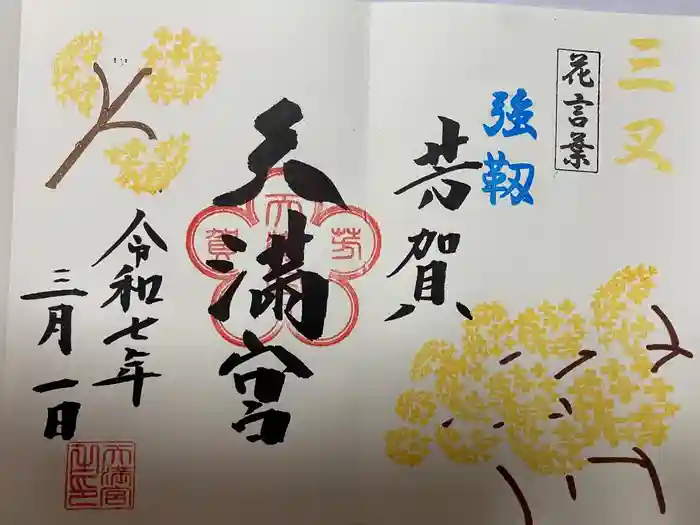 三叉
花言葉
強靱
芳賀
天満宮
令和七年
三月一日